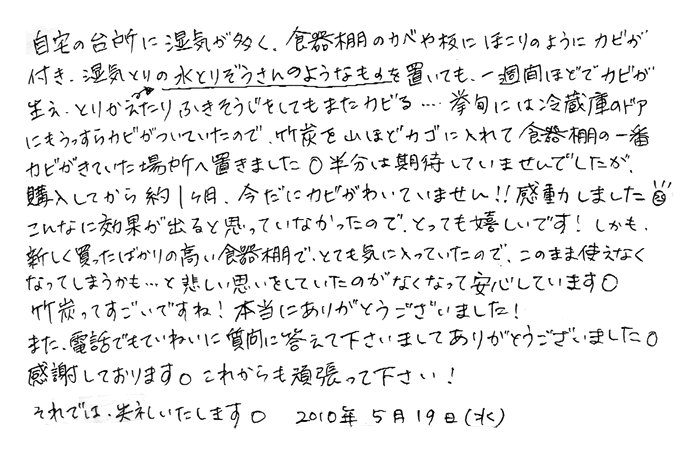 自宅の台所に湿気が多く、食器棚のカベや板にほこりのようにカビが
付き、湿気とりの水とりぞうさんのようなものを置いても、一週間ほどでカビが
生え、とりかえたりふきそうじをしてもまたカビる…. 挙句には冷蔵庫のドア
にもうっすらカビがついていたので、竹炭を山ほどカゴに入れて食器棚の一番
カビがきていた場所へ置きました。半分は期待していませんでしたが、
購入してから約1ヶ月、今だにカビがわいていません!! 感動しました
こんなに効果が出ると思っていなかったので、とっても嬉しいです! しかも、
新しく買ったばかりの高い食器棚で、とても気に入っていたので、このまま使えなく
なってしまうかも…と悲しい思いをしていたのがなくなって安心しています。
竹炭ってすごいですね! 本当にありがとうございました!
また、電話でもていねいに質問に答えて下さいましてありがとうございました。
感謝しております。これからも頑張って下さい!
それでは、失礼いたします。 2010年5月19日(水)